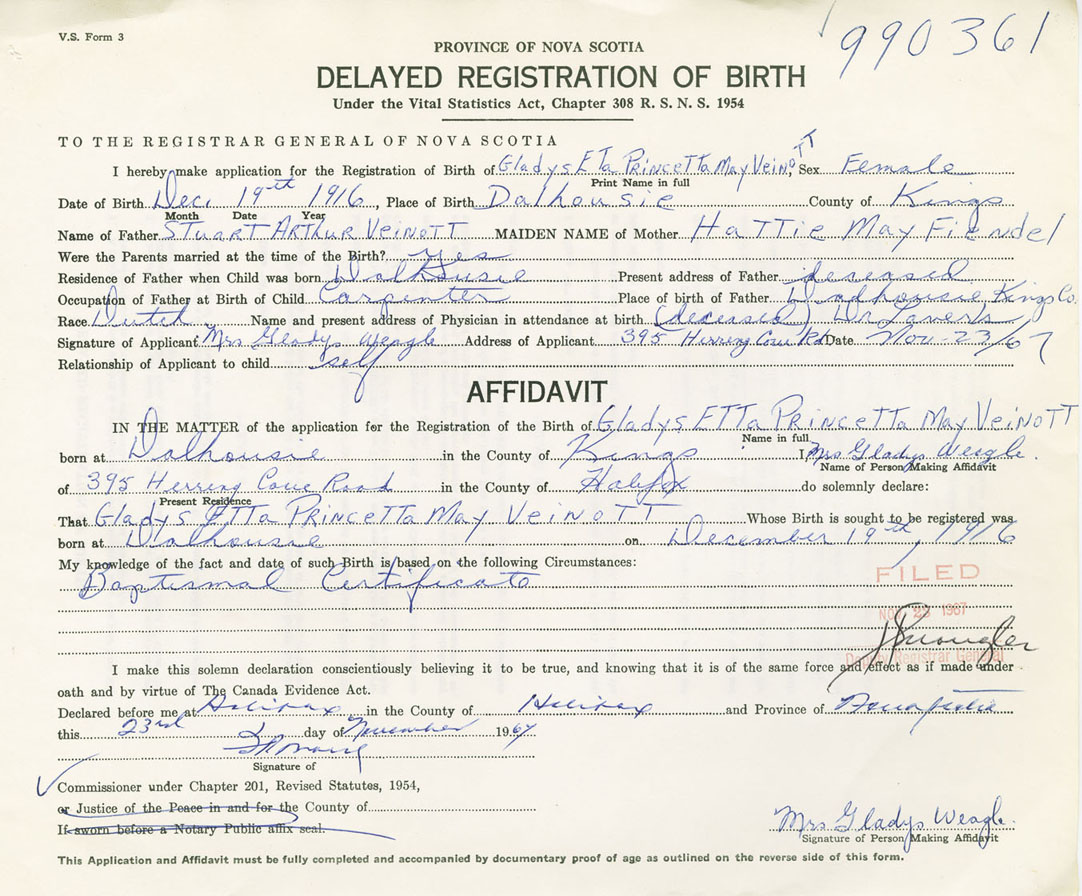 V.S. Form 3
990361
PROVINCE OF NOVA SCOTIA
DELAYED REGISTRATION OF BIRTH
Under the Vital Statistics Act, Chapter 308 R. S. N. S. 1954
TO THE REGISTRAR GENERAL OF NOVA SCOTIA
I hereby make application for the Registration of Birth of Gladys ETTa PRINCETTa May VeiNoTT, Sex Female
Print Name in full
Date of Birth Dec. 19th 1916, Place of Birth Dalhousie County of Kings
Month Date Year
Name of Father STuaRT ARThuR VeiNoTT MAIDEN NAME of Mother HaTTie May Fiendel
Were the Parents married at the time of the Birth? yes
Residence of Father when Child was born Dalhousie Present address of Father deseased
Occupation of Father at Birth of Child Carpenter Place of birth of Father Dadhousie Kings Co.
Race Dutch Name and present address of Physician in attendance at birth (deceased) Dr
Signature of Applicant Mrs Gladys Weagle Address of Applicant 395 Herring Cove Rd Date Nov-23/67
Relationship of Applicant to child self
AFFIDAVIT
IN THE MATTER of the application for the Registration of the Birth of Gladys ETTa PRINCETTa May VeiNoTT
Name in full
born at Dalhousie in the County of Kings I Mrs Gladys Weagle.
Name of Person Making Affidavit
of 395 Herring Cove Road in the County of Halifax do solemnly declare:
Present Residence
That Gladys ETTa PRINCETTa May VeiNoTT Whose Birth is sought to be registered was
born at Dalhousie on December 19th, 1916
My knowledge of the fact and date of such Birth is based on the following Circumstances:
Baptismal Certificate
FILED
NOV 23 1967
Deputy Registrar General
I make this solemn declaration conscientiously believing it to be true, and knowing that it is of the same force and effect as if made under
oath and by virtue of The Canada Evidence Act.
Declared before me at Halifax in the County of Halifax and Province of Nova Scotia
this 23rd day of November 1967
Signature of
Commissioner under Chapter 201, Revised Statutes, 1954,
or Justice of the Peace in and for the County of
If sworn before a Notary Public affix seal.
Mrs Gladys Weagle.
Signature of Person Making Affidavit
This Application and Affidavit must be fully completed and accompanied by documentary proof of age as outlined on the reverse side of this form.